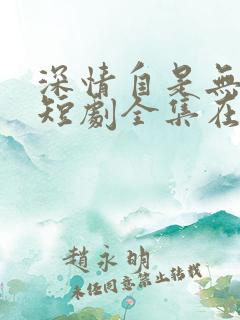 深情自是無
短劇全集在
趙永明
未經同意禁止轉載